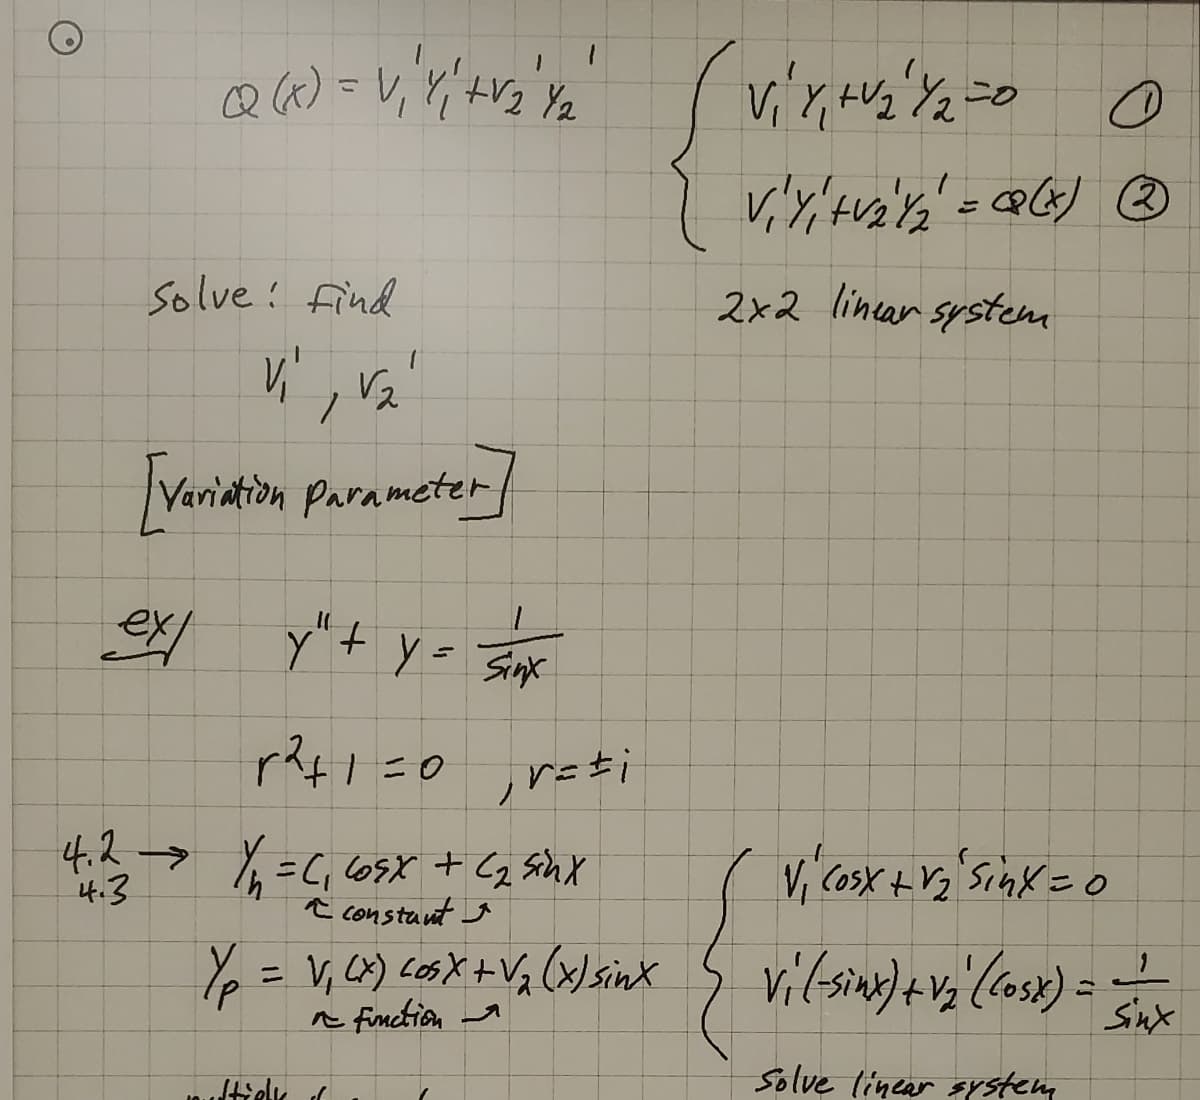 Q(x) = V₁'Y₁' + V₂'Y₂'
V₁'Y₁ + V₂'Y₂ = 0 ①
V₁'Y₁' + V₂'Y₂' = Q(x) ②
Solve: Find
2x2 linear system
V₁', V₂'
[Variation Parameter]
ex/ y" + y = 1/sinx
r² + 1 = 0, r = ±i
4.2 → Yh = C₁ cosx + C₂ sinx
4.3
↖ constant ↗
V₁'cosx + V₂'sinx = 0
Yp = V₁(x) cosx + V₂(x) sinx
↖ function ↗
V₁'(-sinx) + V₂'(cosx) = 1/sinx
Solve linear system